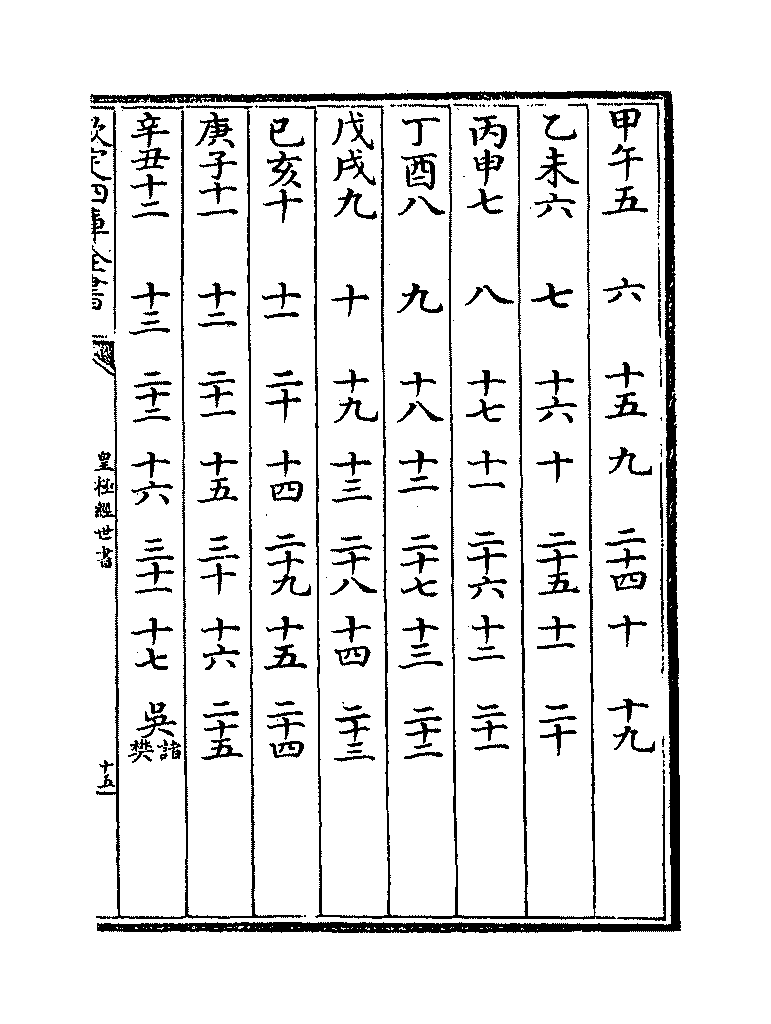 甲午五　六　十五　九　二十四　十　十九
乙未六　七　十六　十　二十五　十一　二十
丙申七　八　十七　十一　二十六　十二　二十一
丁酉八　九　十八　十二　二十七　十三　二十二
戊戌九　十　十九　十三　二十八　十四　二十三
己亥十　十一　二十　十四　二十九　十五　二十四
庚子十一　十二　二十一　十五　三十　十六　二十五
辛丑十二　十三　二十二　十六　三十一　十七　吳諸樊
欽定四庫全書　皇極經世書　十五